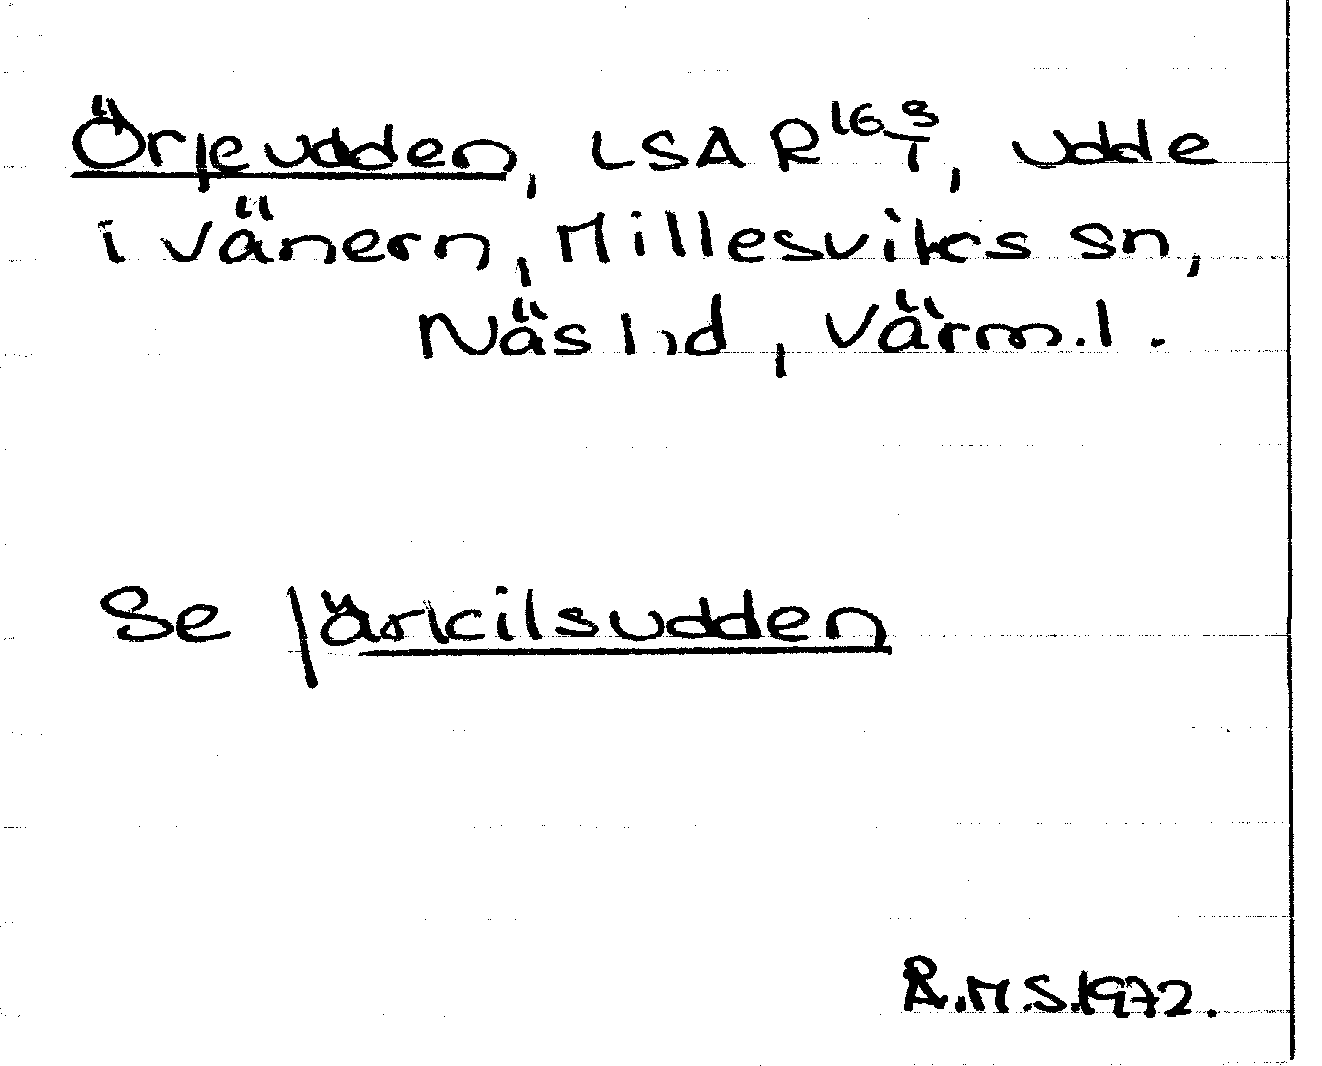 Örjeudden, LSA R 16 9/T, udde
i Vänern, Millesviks sn,
Näs hd, Värml.
Se Järkilsudden
Å.M.S.1972.